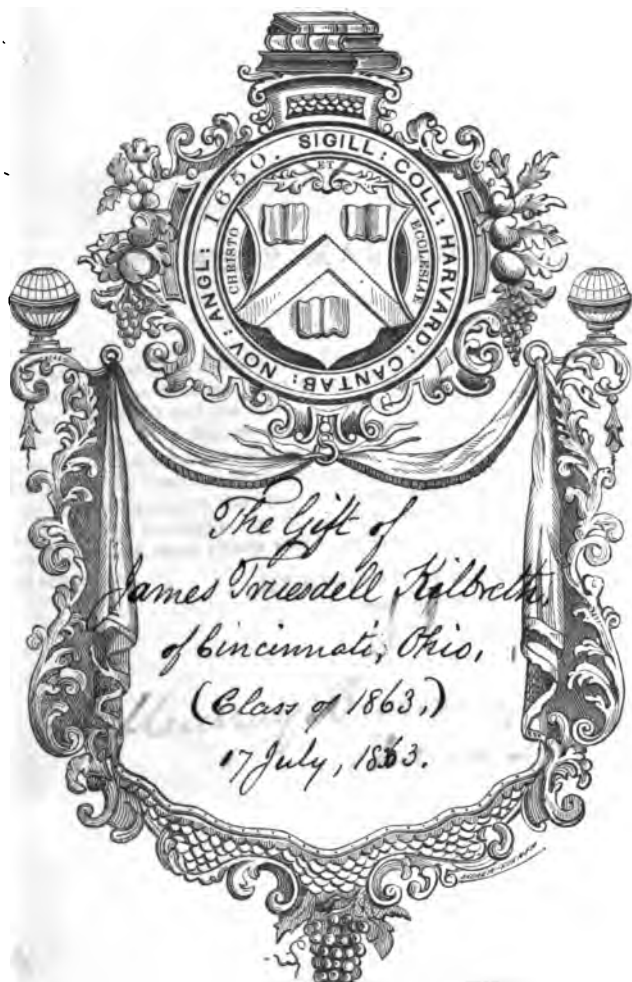 SIGILL: COLL: HARVARD: CANTAB: NOV: ANGL: 1650.
CHRISTO
ET
ECCLESIAE
The Gift of
James Truesdell Kilbreth,
of Cincinnati, Ohio,
(Class of 1863,)
17 July, 1863.